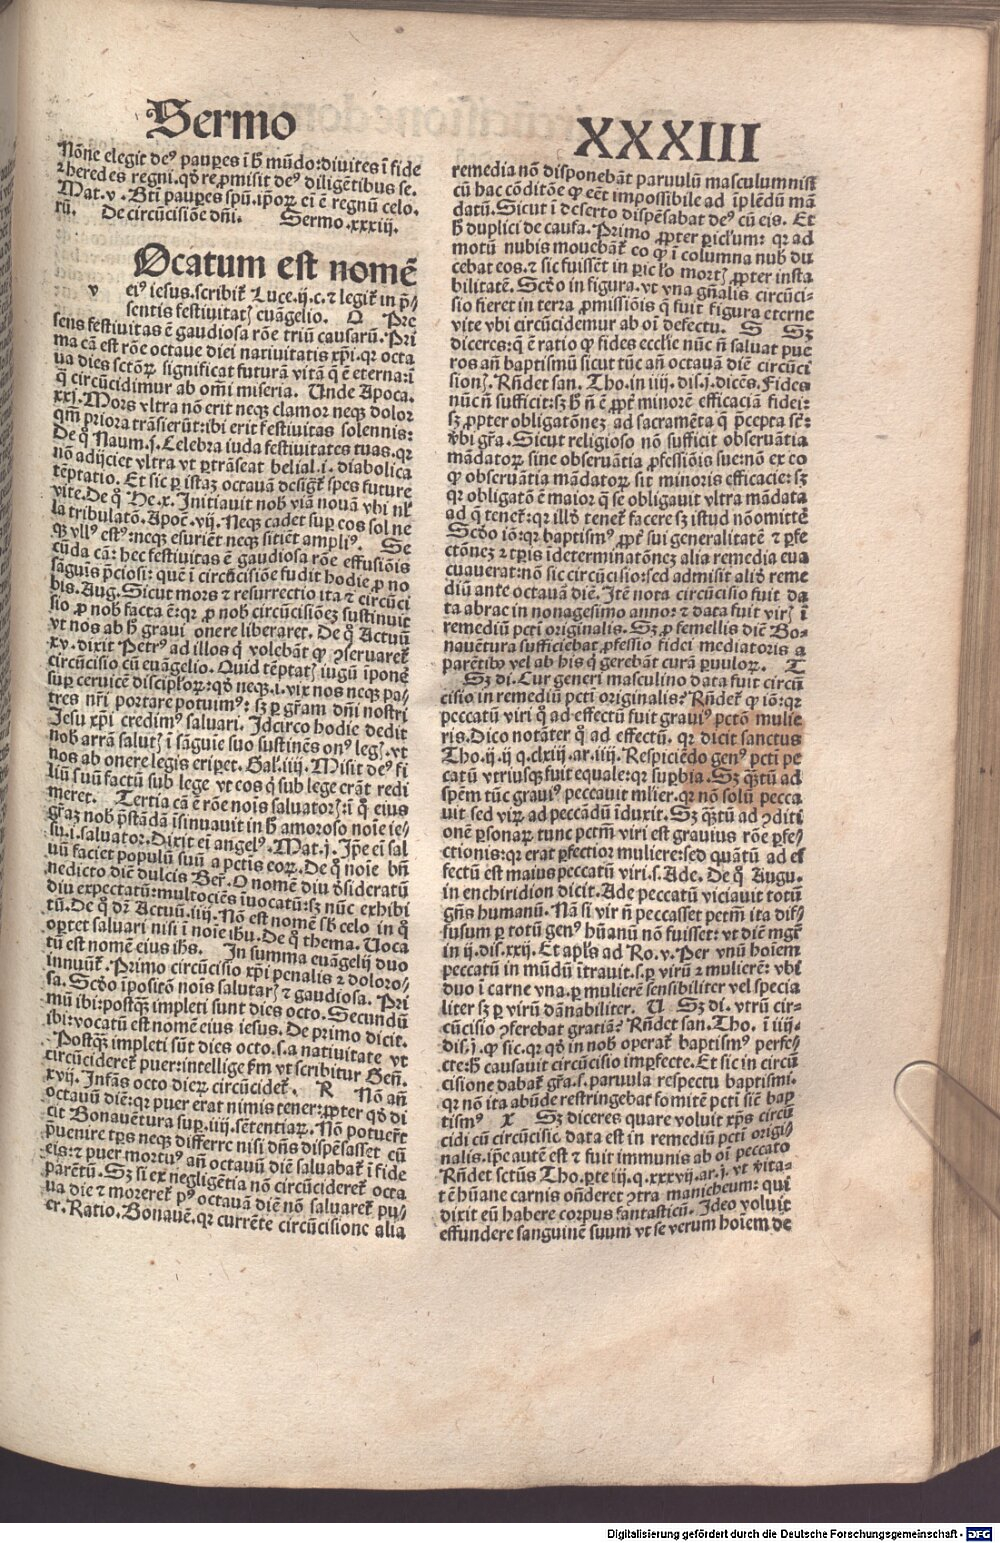 Sermo XXXIII
Nōne elegit deꝰ paupes ī h̄ mūdo: diuites ī fide
⁊ heredes regni. qd̄ repmisit deꝰ diligētibus se.
Mat. v. Bt̄i paupes spū. ipōꝝ ei ē regnū celo.
rū. De circūcisiōe dn̄i. Sermo .xxxiij.
Ocatum est nomē
v eiꝰ iesus. scribit̄ Luce .ij. c. ⁊ legit̄ in p̄-
sentis festiuitatꝭ euāgelio. Q Pre
sens festiuitas ē gaudiosa rōe triū causarū. Pri
ma cā est rōe octaue diei natiuitatis xp̄i. qr octa
ua dies sctōꝝ significat futurā vitā q̄ ē eterna: ī
q̄ circūcidimur ab om̄i miseria. Unde Apoca.
xxj. Mors vltra nō erit neqꝫ clamor neqꝫ dolor
qm̄ priora trāsierūt: ibi erit festiuitas solennis:
De q̄ Naum. j. Celebra iuda festiuitates tuas. qr
nō adijciet vltra vt ptrāseat belial .i. diabolica
tēptatio. Et sic p istaꝫ octauā desigt̄ spes future
vite. De q̄ He. x. Initiauit nob viā nouā vbi nl̄-
la tribulatō. Apoc̄. vij. Neqꝫ cadet sup eos sol ne
qꝫ vllꝰ estꝰ: neqꝫ esuriēt neqꝫ sitiēt ampliꝰ. Se
cūda cā: hec festiuitas ē gaudiosa rōe effusiōis
sāguīs p̄ciosi: quē ī circūcisiōe fudit hodie ꝓ no
bis. Aug. Sicut mors ⁊ resurrectio ita ⁊ circūci
sio ꝓ nob facta ē: qr ꝓ nob circūcisiōeꝫ sustinuit
vt nos ab h̄ graui onere liberaret. De q̄ Actuū
xv. dixit Petrꝰ ad illos q̄ volebāt ꝙ ꝯseruaret̄
circūcisio cū euāgelio. Quid tēptatꝭ iugū īponē
sup ceruicē discipl'oꝝ: qd̄ neqꝫ .i. vix nos neqꝫ pa-
tres nr̄i portare potuimꝰ: sꝫ p gr̄am dn̄i nostri
Jesu xp̄i credimꝰ saluari. Idcirco hodie dedit
nob arrā salutꝭ ī sāguīe suo sustinēs onꝰ legꝭ. vt
nos ab onere legis eripet. Gal'. iiij. Misit deꝰ fi
liū suū factū sub lege vt eos q̄ sub lege erāt redi
meret. Tertia cā ē rōe nois saluatorꝭ: ī q̄ eius
gr̄aꝫ nob p̄stādā īsinuauit in h̄ amoroso noīe ie-
su .i. saluator. Dixit ei angelꝰ. Mat. j. Ip̄e ei sal
uū faciet populū suū a pctis eoꝝ. De q̄ noīe bn̄
nedicto diē dulcis Ber̄. O nomē diu ds̄ideratū
diu expectatū: multociēs īuocatū: sꝫ nūc exhibi
tū. De q̄ dr̄ Actuū. iiij. Nō est nomē sb̄ celo in q̄
oꝑtet saluari nisi ī noīe ihū. De q̄ thema. Uoca
tū est nomē eius ihs̄. In summa euāgelij duo
innuūt̄. Primo circūcisio xp̄i penalis ⁊ doloro-
sa. Scd̄o īpositō nois salutarꝭ ⁊ gaudiosa. Pri
mū ibi: postqꝫ impleti sunt dies octo. Secundū
ibi: vocatū est nomē eius iesus. De primo dicit.
Postqꝫ impleti sūt dies octo. s. a natiuitate vt
circūcideret̄ puer: intellige fm̄ vt scribitur Gen̄.
xvij. Infās octo dieꝝ circūcidet̄. R Nō añ
octauū diē: qr puer erat nimis tener: ꝓpter qd̄ di
cit Bonauētura sup .iiij. sētentiaꝝ. Nō potuer̄t
p̄uenire tp̄s neqꝫ differre nisi dn̄s dispēsasset cū
eis: ⁊ puer mortuꝰ añ octauū diē saluabat̄ ī fide
parētū. Sꝫ si ex negligētia nō circūcideret̄ octa
ua die ⁊ moreret̄ pꝰ octauā diē nō saluaret̄ pu-
er. Ratio. Bonauē. qr currēte circūcisione alia
remedia nō disponebāt paruulū masculum nisi
cū hac cōditōe ꝙ eēt impossibile ad īplēdū mā
datū. Sicut ī deserto dispēsabat deꝰ cū eis. Et
h̄ duplici de causa. Primo ꝓpter picl'um: qr ad
motū nubis mouebāt̄ eo ꝙ ī columna nub du
cebat eos. ⁊ sic fuissēt in picl'o mortꝭ ꝓpter insta
bilitatē. Scd̄o in figura. vt vna gn̄alis circūci-
sio fieret in terra ꝓmissiōis q̄ fuit figura eterne
vite vbi circūcidemur ab oi defectu. S Sꝫ
diceres: q̄ ē ratio ꝙ fides eccl'ie nūc n̄ saluat pue
ros añ baptismū sicut tūc añ octauā diē circūci
sionꝭ. Rn̄det san. Tho. in iiij. dis. j. dicēs. Fides
nūc n̄ sufficit: sꝫ h̄ n̄ ē ꝓpt̄ minorē efficaciā fidei:
sꝫ ꝓpter obligatōneꝫ ad sacramēta q̄ p̄cepta sr̄:
vbi gr̄a. Sicut religioso nō sufficit obseruātia
mādatoꝝ sine obseruātia ꝓfessiōis sue: nō ex eo
ꝙ obseruātia mādatoꝝ sit minoris efficacie: sꝫ
qr obligatō ē maior q̄ se obligauit vltra mādata
ad q̄ tenet̄: qr illd̄ tenet̄ facere sꝫ istud nō omittē
Scd̄o iō: qr baptismꝰ ꝓpt̄ sui generalitatē ⁊ pfe
ctōneꝫ ⁊ tp̄is īdeterminatōneꝫ alia remedia eua
cuauerat: nō sic circūcisio: sed admisit aliḋ reme
diū ante octauā diē. Itē nota circūcisio fuit da
ta abrae in nonagesimo anno: ⁊ data fuit virꝭ ī
remediū pcti originalis. Sꝫ ꝓ femellis diē Bo-
nauētura sufficiebat ꝓfessio fidei mediatoris a
parētibꝰ vel ab his q̄ gerebāt curā puuloꝝ. T
Sꝫ di. Cur generi masculino data fuit circū
cisio in remediū pcti originalis? Rn̄det̄ ꝙ iō: qr
peccatū viri q̄ ad effectū fuit grauiꝰ pctō mulie
ris. Dico notāter q̄ ad effectū. qr dicit sanctus
Tho. ij. ij q. clxiij. ar. iiij. Respiciēdo genꝰ pcti pe
catū vtriusqꝫ fuit equale: qr supbia. Sꝫ qꝫtū ad
spēm tūc grauiꝰ peccauit ml'ier. qr nō solū pecca
uit sed viꝝ ad peccādū īduxit. Sꝫ qꝫtū ad ꝯditi
onē psonaꝝ tunc pctm̄ viri est grauius rōe pfe-
ctionis: qr erat pfectior muliere: sed quātū ad ef
fectū est maius peccatū viri. s. Ade. De q̄ Augu.
in enchiridion dicit. Ade peccatū viciauit totū
gn̄s humanū. Nā si vir n̄ peccasset pctm̄ ita dif-
fusum p totū genꝰ hūanū nō fuisset: vt diē mgr̄
in ij. dis. xxij. Et apl's ad Ro. v. Per vnū hoīem
peccatū in mūdū ītrauit. s. p virū ⁊ mulierē: vbi
duo ī carne vna. p mulierē sensibiliter vel specia
liter sꝫ p virū dānabiliter. U Sꝫ di. vtrū cir-
cūcisio ꝯferebat gratiā? Rn̄det san. Tho. ī iiij.
dis. j. ꝙ sic. qr qd̄ in nob operat̄ baptismꝰ perfe-
cte: h̄ causauit circūcisio impfecte. Et sic in circū
cisione dabat̄ gr̄a. s. paruula respectu baptismi.
qr nō ita abūde restringebat fomitē pcti siē bap
tismꝰ X Sꝫ diceres quare voluit xp̄s circū
cidi cū circūcisio data est in remediū pcti origi-
nalis. ip̄e autē est ⁊ fuit immunis ab oi peccato
Rn̄det sctūs Tho. pte iij. q. xxxvij. ar. j. vt vita-
tē hūane carnis on̄deret ꝯtra manicheum: qui
dixit eū habere corpus fantasticū. Ideo voluit
effundere sanguinē suum vt se verum hoīem de
Digitalisierung gefördert durch die Deutsche Forschungsgemeinschaft - DFG